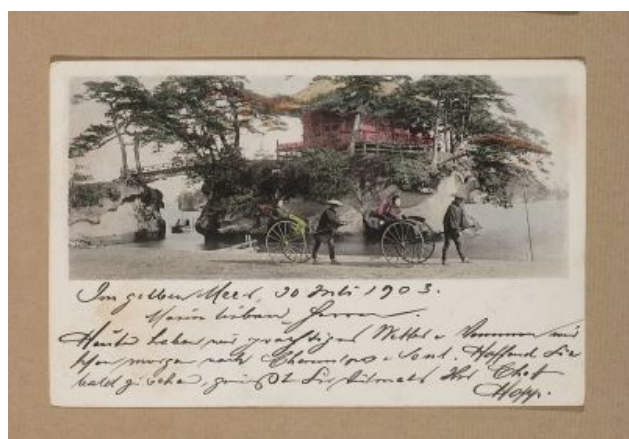 Im gelben Meer, 30 Juli 1903.
Meine lieben Herren.
Heute haben wir prachtiges Wetter u kommen wir
schon morgen nach Chemulpo u Seoul. Hoffend Sie
bald zu sehen, grüßt Sie Ihr Chef
Hopp.